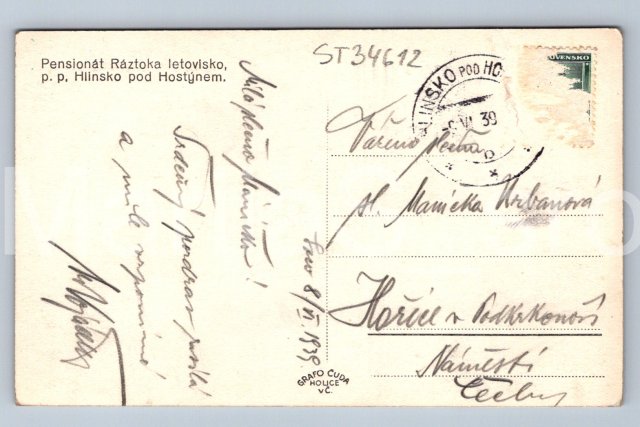 Pensionát Ráztoka letovisko,
p. p. Hlinsko pod Hostýnem.
ST34612
HLINSKO POD HO
VI 39
OVENSKO
Milá slečno
Maničko!
Srdečný pozdrav posílá
a mile vzpomíná
8/VI. 1939
Vážená slečna
sl. Manička Urbanová
Hořice v Podkrkonoší
Náměstí
Čechy
GRAFO ČUDA
HOLICE
V Č.